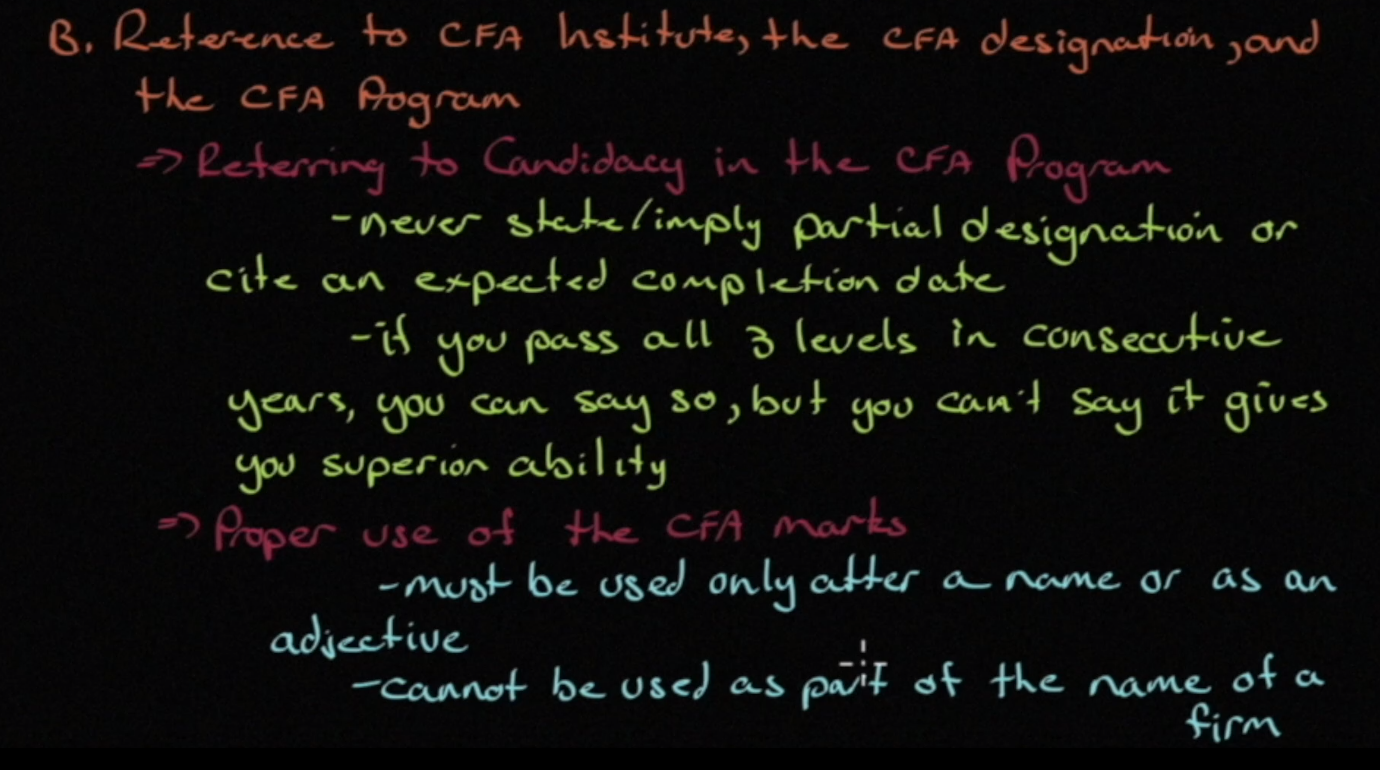 B. Reference to CFA Institute, the CFA designation, and
the CFA Program
=> Referring to Candidacy in the CFA Program
-never state/imply partial designation or
cite an expected completion date
-if you pass all 3 levels in consecutive
years, you can say so, but you can't say it gives
you superior ability
=> Proper use of the CFA marks
-must be used only after a name or as an
adjective
-cannot be used as part of the name of a
firm